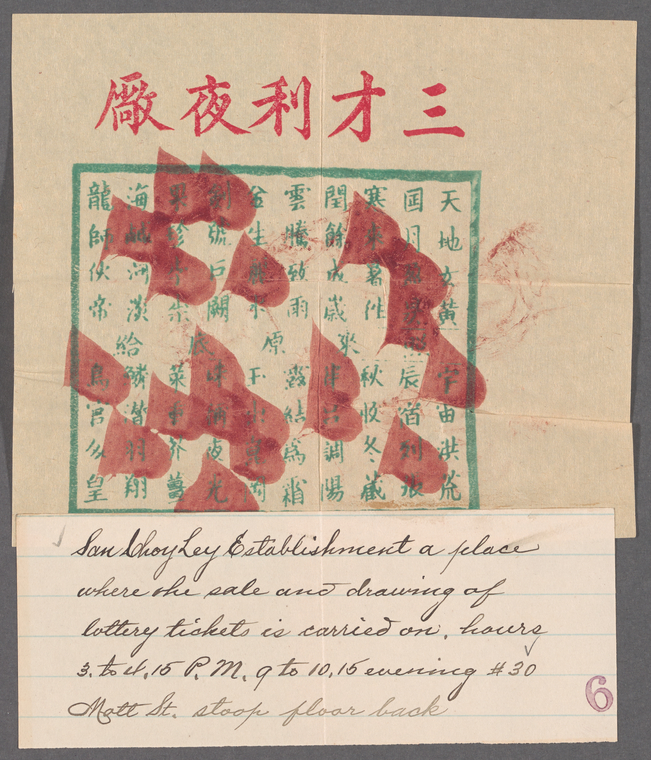 三才利夜廠
天地玄黃宇宙洪荒
月辰宿列張
寒來暑往秋收冬藏
閏餘成歲來律調陽
雲騰致雨露結為霜
生原玉出
劍號巨闕底夜光
果珍李柰菜重芥薑
海鹹河淡給鱗潛羽翔
龍師伙帝鳥官人皇
San Choy Ley Establishment a place
where the sale and drawing of
lottery tickets is carried on, hours
3. to 4,15 P.M, 9 to 10,15 evening #30
Mott St. stoop floor back
6